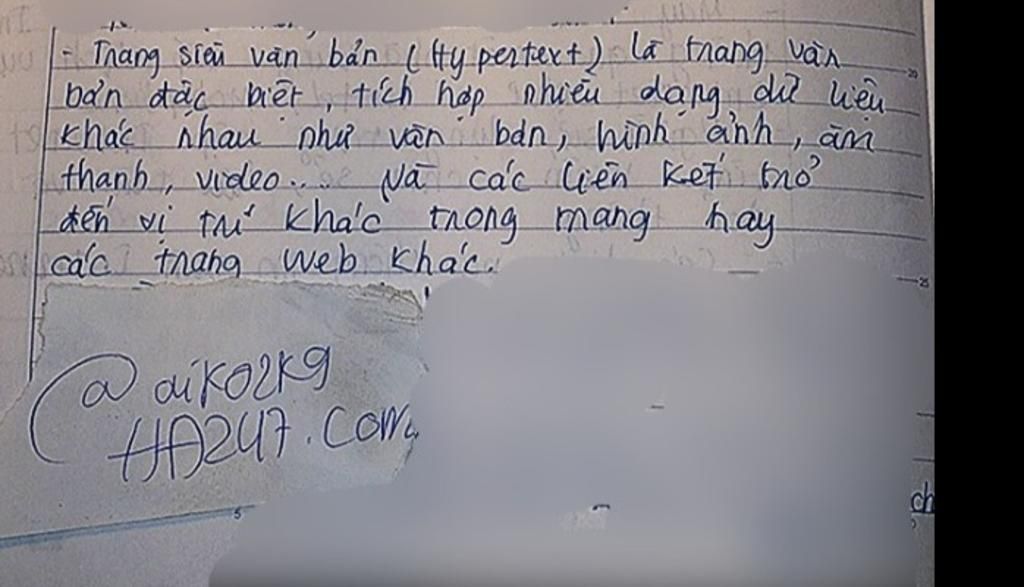 - Trang siêu văn bản (Hypertext) là trang văn
bản đặc biệt, tích hợp nhiều dạng dữ liệu
khác nhau như văn bản, hình ảnh, âm
thanh, video... và các liên kết trỏ
đến vị trí khác trong mạng hay
các trang web khác.
@aiko2k9
HA247.com
ch